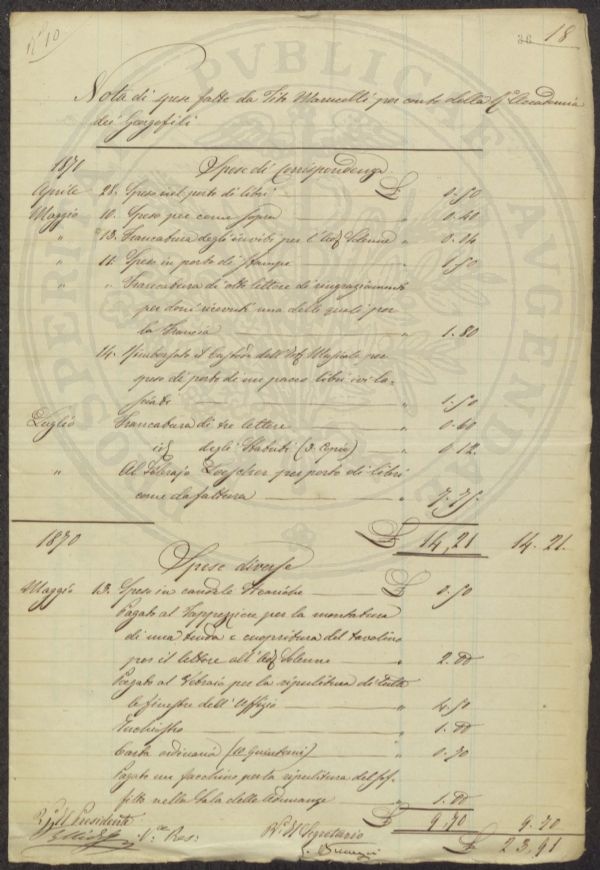 N° 10
36 18
Nota di spese fatte da Tito Marucelli per conto della R. Accademia
dei Georgofili
1870 Spese di Corrispondenza
Aprile 28. Spese nel porto di libri £ 0.50
Maggio 10. Spese per come sopra " 0.40
" 13. Francatura degli inviti per l' Solenne " 0.24
" 11. Spese in porto di stampe " 1.50
" " Francatura di otto lettere di ringraziamenti
per doni ricevuti una delle quali per
la Francia " 1.80
14. Rimborsato il dell' per
spese di porto di un pacco libri ivi la-
sciati " 1.50
Luglio Francatura di tre lettere " 0.60
id degli Statuti " 0.12
" Al Libraio Loescher per porto di libri
come da fattura " 7.75
£ 14,21 14.21.
1870 Spese diverse
Maggio 13. Spese in candele Steariche £ 0.50
Pagato al Tappezziere per la montatura
di una tenda e copritura del tavolino
per il lettore all' Solenne " 2.00
Pagato al Vetraio per la ripulitura di tutte
le finestre dell' Uffizio " 4.50
Inchiostro " 1.00
Carta ordinaria " 0.70
Pagato un facchino per la ripulitura del sof-
fitto nella Sala delle Adunanze " 1.00
9.70 9.70
£ 23.91
V° Il Presidente
V° Il Segretario
PROSPERITATI PVBLICAE AVGENDAE